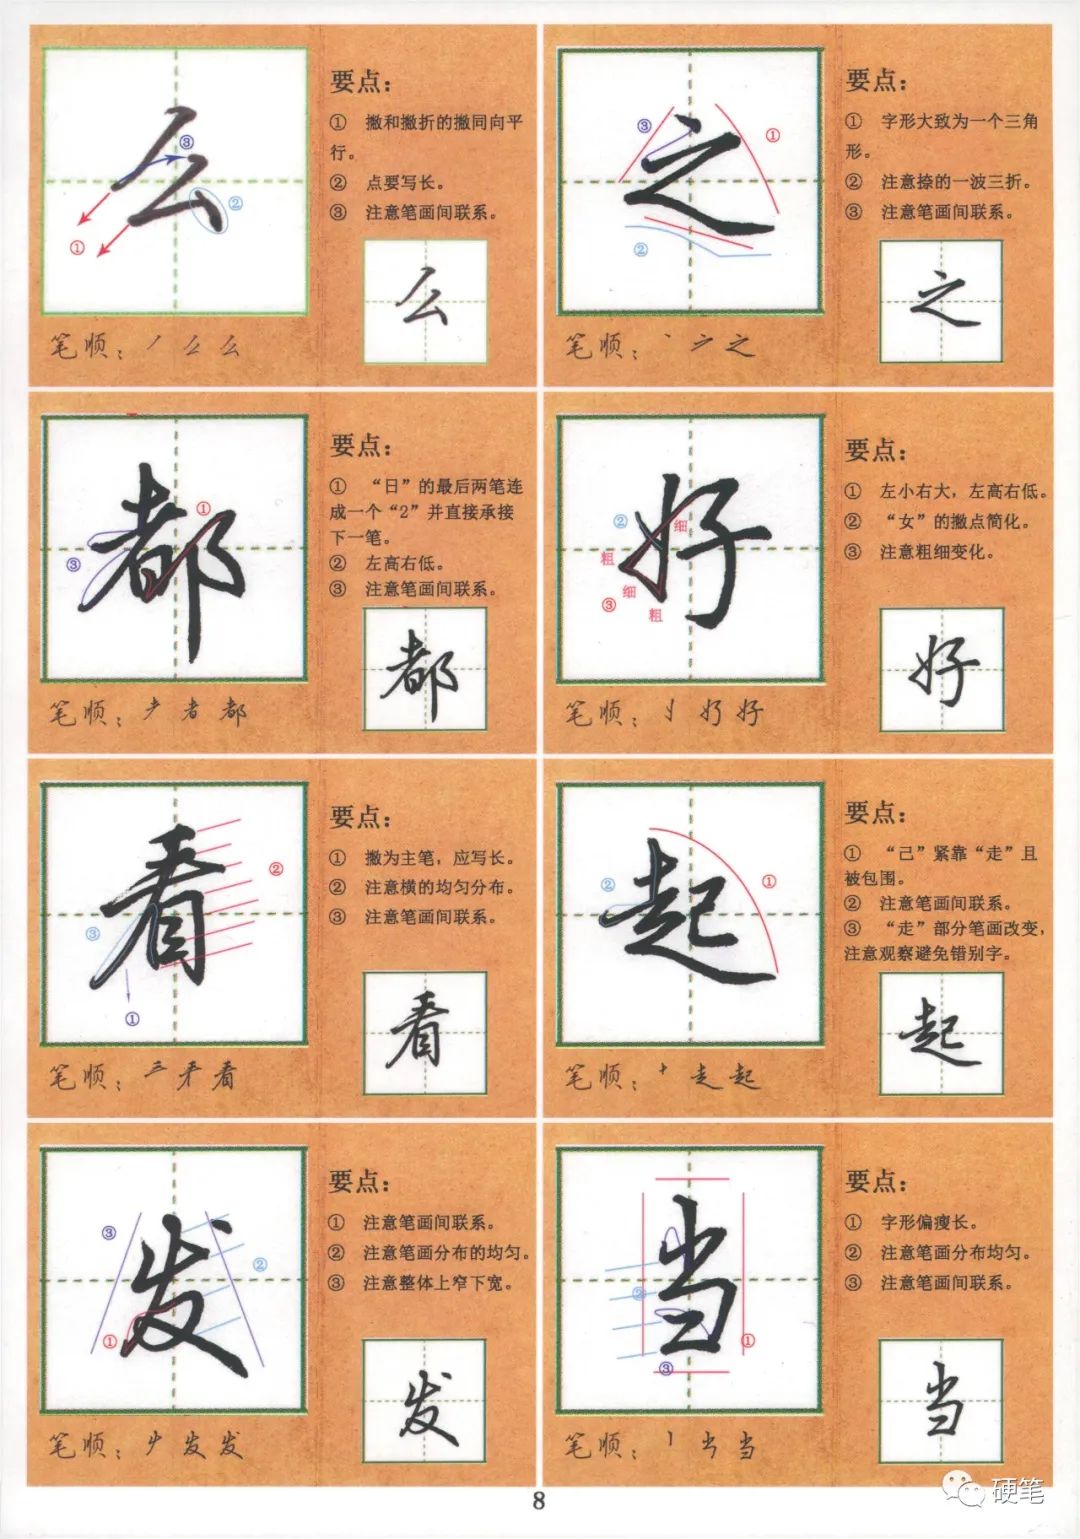 么
要点：
① 撇和撇折的撇同向平
行。
② 点要写长。
③ 注意笔画间联系。
③
②
①
么
笔顺：丿 么 么
之
要点：
① 字形大致为一个三角
形。
② 注意捺的一波三折。
③ 注意笔画间联系。
③
①
②
之
笔顺：丶 之
都
要点：
① “日”的最后两笔连
成一个“2”并直接承接
下一笔。
② 左高右低。
③ 注意笔画间联系。
①
③
都
笔顺：耂 者 都
好
要点：
① 左小右大，左高右低。
② “女”的撇点简化。
③ 注意粗细变化。
②
细
粗
细
③
粗
好
笔顺：好 好
看
要点：
① 撇为主笔，应写长。
② 注意横的均匀分布。
③ 注意笔画间联系。
②
③
①
看
笔顺：三 看
起
要点：
① “己”紧靠“走”且
被包围。
② 注意笔画间联系。
③ “走”部分笔画改变，
注意观察避免错别字。
②
①
起
笔顺：十 走 起
发
要点：
① 注意笔画间联系。
② 注意笔画分布的均匀。
③ 注意整体上窄下宽。
③
②
①
发
笔顺：发 发
当
要点：
① 字形偏瘦长。
② 注意笔画分布均匀。
③ 注意笔画间联系。
②
①
③
当
笔顺：丨 当
8
硬笔